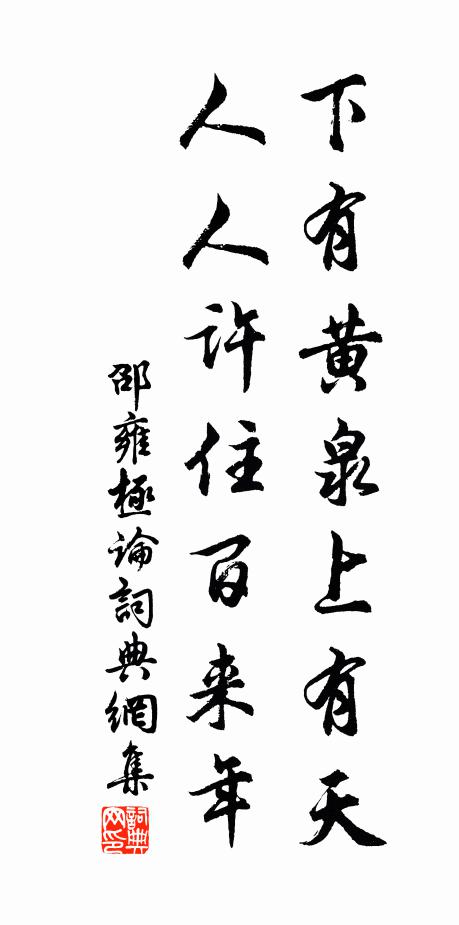 下有黄泉上有天
人人許住百来年
邵雍極論詞典網集
詞典网印